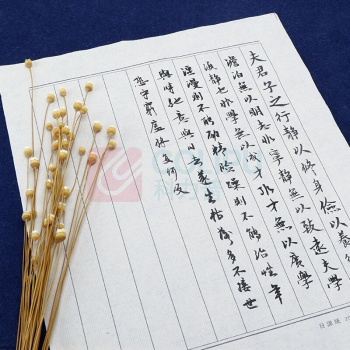 夫君子之行静以修身儉以養
澹泊無以明志非寧静無以致遠夫學
須静也非學無以成才無以廣學
淫漫則不能險躁則不能治性年
與時馳意與日去遂枯落多不接世
悲守窮廬将復何及